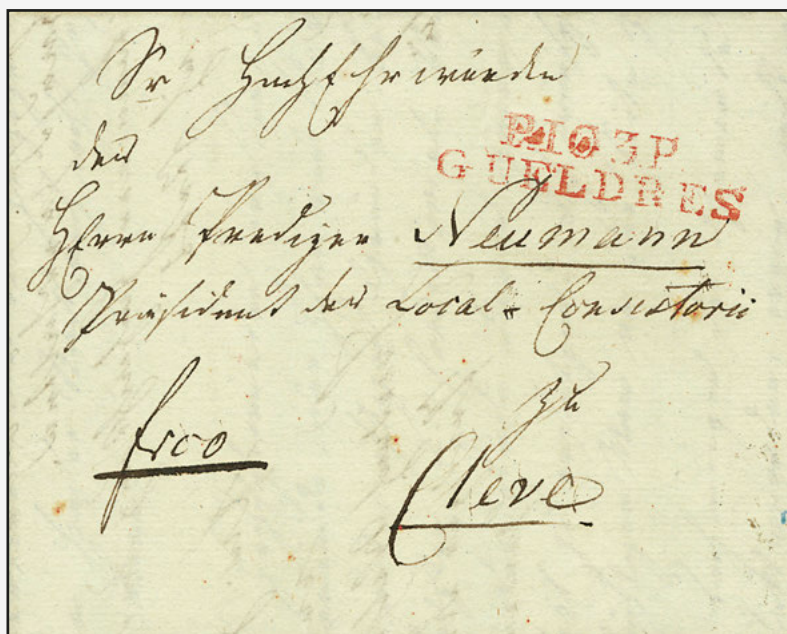 Sr HochEhrwürden
P.103.P
GUELDRES
des
HErrn Prediger Neumann
Präsident des Local-Consistorii
frco
zu
Cleve